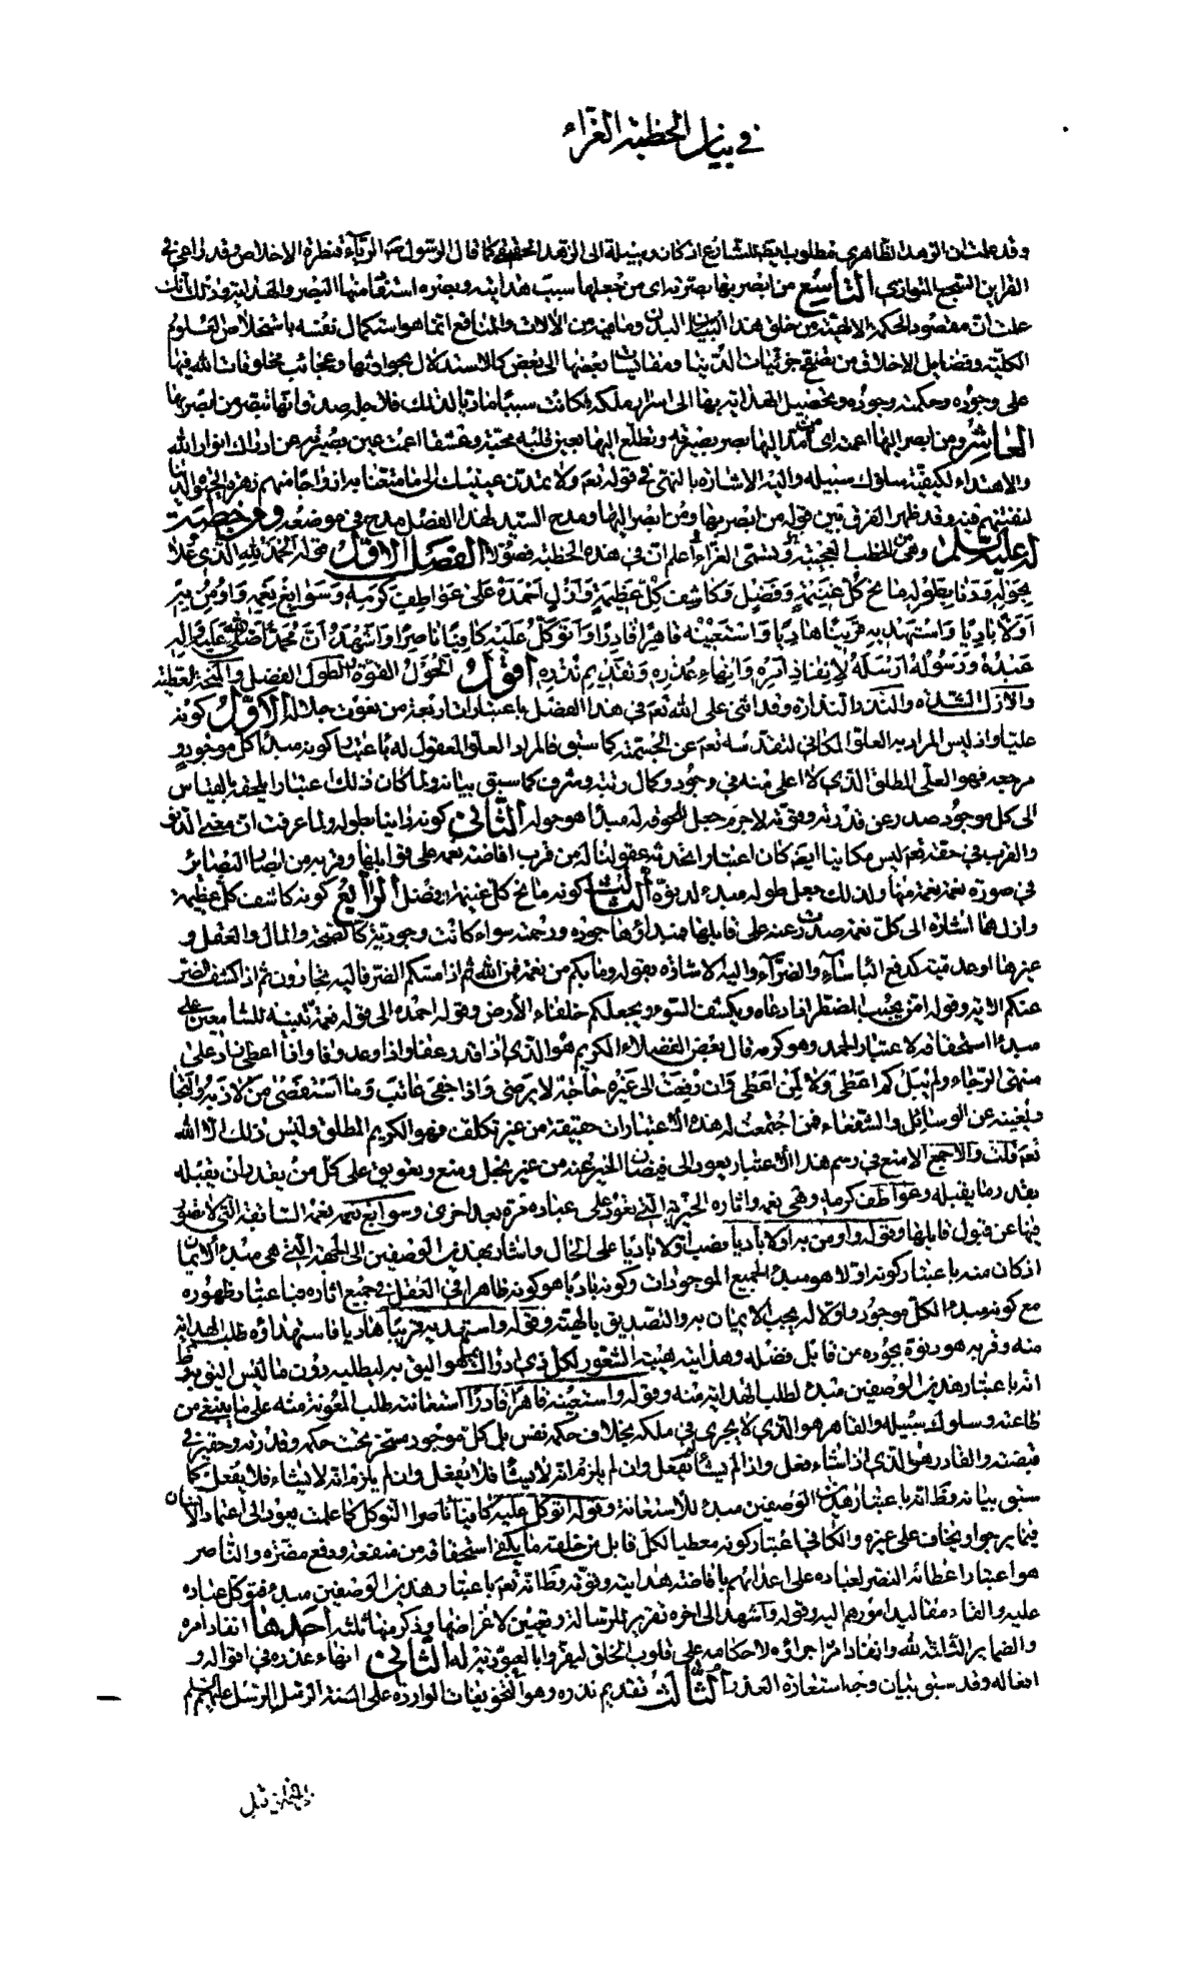 في بيان الخطبة الغراء
وقد علمت ان الزهد الظاهري مطلوب ايضا للشارع اذ كان وسيلة الى الزهد الحقيقي كما قال الرسول ص الرياء قنطرة الاخلاص وقد راعى في
القراين السجع المتوازي التاسع من ابصر بها بصرته اى من جعلها سبب هدايته وبصره استفاد منها البصر والهداية وذلك انك
علمت ان مقصود الحكمة الالهية من خلق هذا البدن وما فيه من الالات والمنافع انما هو استكمال نفسه باستخلاص العلوم
الكلية وفضايل الاخلاق من تصفح جزئيات الدنيا ومقايسات بعضها الى بعض كالاستدلال بحوادثها وعجائب مخلوقات الله فيها
على وجوده وحكمته وجوده وتحصيل الهداية بها الى اسرار ملكه فكانت سببا ماديا لذلك فلاجله صدق انها تبصر من ابصر بها
العاشر ومن ابصر اليها اعمته اى من مد اليها بصر بصيرته وتطلع اليها بعين قلبه محبة وعشقا اعمت عين بصيرته عن ادراك انوار الله
والاهتداء لكيفية سلوك سبيله واليه الاشارة بالنهى في قوله تعم ولا تمدن عينيك الى ما متعنا به ازواجا منهم زهرة الحيوة الدنيا
لنفتنهم فيه وقد ظهر الفرق بين قوله من ابصر بها ومن ابصر اليها ومدح السيد لهذا الفصل مدح في موضعه ومن خطبة
له عليه السلام وهي من الخطب العجيبة وتسمى الغراء اعلم ان في هذه الخطبة فصولا الفصل الاول قوله الحمد لله الذي علا
بحوله ودنا بطوله مانح كل غنيمة وفضل وكاشف كل عظيمة وازل احمده على عواطف كرمه وسوابغ نعمه واومن به
اولا باديا واستهديه قريبا هاديا واستعينه قاهرا قادرا واتوكل عليه كافيا ناصرا واشهد ان محمدا صلى الله عليه واله
عبده ورسوله ارسله لانفاذ امره وانهاء عذره وتقديم نذره اقول الحول القوة والطول الفضل والمنحة العطية
والازل الشدة والنذر النذارة وقد اثنى على الله تعم في هذا الفصل باعتبارات اربعة من نعوت جلاله الاول كونه
عليا واذ ليس المراد به العلو المكاني لتقدسه تعم عن الجسمية كما سبق فالمراد العلو المعقول له باعتبار كونه مبدأ كل موجود و
مرجعه فهو العلي المطلق الذي لا اعلى منه في وجود وكمال رتبة وشرف كما سبق بيانه ولما كان ذلك اعتبارا يلحقه بالقياس
الى كل موجود صدر عن قدرته وقوته لاجرم جعل للحوقه له مبدأ هو حوله الثاني كونه دانيا بطوله ولما عرفت ان معنى الدنو
والقرب في حقه تعم ليس مكانيا ايضا كان اعتبارا تحدثه عقولنا له من قرب افاضة نعمه على قوابلها وقربه من ابصار البصائر
في صورة نعمة نعمة منها ولذلك جعل طوله مبدء لدنوه الثالث كونه مانح كل غنيمة وفضل الرابع كونه كاشف كل عظيمة
وازل هما اشارة الى كل نعمة صدرت عنه على قابلها فمبدأها جوده ورحمته سواء كانت وجودية كالصحة والمال والعقل و
غيرها او عدمية كدفع البأساء والضراء واليه الاشارة بقوله وما بكم من نعمة فمن الله ثم اذا مسكم الضر فاليه تجارون ثم اذا كشف الضر
عنكم الاية وقوله امن يجيب المضطر اذا دعاه ويكشف السوء ويجعلكم خلفاء الأرض وقوله احمده الى قوله نعمه تنبيه للسامعين على
مبدء استحقاقه لاعتبار الحمد وهو كرمه قال بعض الفضلاء الكريم هو الذي اذا قدر عفا واذا وعد وفا واذا اعطى زاد على
منتهى الرجاء ولم يبال كم اعطى ولا لمن اعطى وان رفعت الى غيره حاجة لا يرضى واذا جفى عاتب وما استقصى من لاذ به والتجا
ويغنيه عن الوسائل والشفعاء فمن اجتمعت له هذه الاعتبارات حقيقة من غير تكلف فهو الكريم المطلق وليس ذلك الا الله
تعم قلت والاجمع الامنع في رسم هذا الاعتبار يعود الى فيضان الخير عنه من غير بخل ومنع وتعويق على كل من يقدر ان يقبله
بقدر ما يقبله وعواطف كرمه وهي نعمه واثاره الخيرية التي تعود على عباده مرة بعد اخرى وسوابغ نعمه نعمه السابغة التي لا قصور
فيها عن قبول قابلها وقوله واومن به اولا باديا نصب اولا باديا على الحال واشار بهذين الوصفين الى الجهة التي هي مبدء الايمان
اذ كان منه باعتبار كونه اولا هو مبدء لجميع الموجودات وكونه باديا هو كونه ظاهرا في العقل في جميع اثاره فباعتبار ظهوره
مع كونه مبدء الكل موجود واولا له يجب الايمان به والتصديق بالهيته وقوله واستهديه قريبا هاديا فاستهداؤه طلب الهداية
منه وقربه هو دنوه بجوده من قابل فضله وهدايته هبته الشعور لكل ذي ادراك بما هو اليق به ليطلبه دون ما ليس اليق به وظ
انه باعتبار هذين الوصفين مبدء لطلب الهداية منه وقوله واستعينه قاهرا قادرا استعانته طلب المعونة منه على ما ينبغي من
طاعته وسلوك سبيله والقاهر هو الذي لا يجري في ملكه بخلاف حكمه نفس بل كل موجود مسخر تحت حكمه وقدرته وحقير في
قبضته والقادر هو الذي اذا شاء فعل واذا لم يشأ لم يفعل وان لم يلزم انه لا يشأ فلا يفعل وان لم يلزم انه لا يشاء فلا يفعل كما
سبق بيانه وظ انه باعتبار هذين الوصفين مبدء للاستعانة وقوله اتوكل عليه كافيا ناصرا التوكل كما علمت يعود الى اعتماد الانسان
فيما يرجو او يخاف على غيره والكافي اعتبار كونه معطيا لكل قابل من خلقه ما يكفي استحقاقه من منفعة ودفع مضرة والناصر
هو اعتبار اعطائه النصر لعباده على اعدائهم بافاضة هدايته وقوته وظ انه تعم باعتبار هذين الوصفين مبدء لتوكل عباده
عليه والقاء مقاليد امورهم اليه وقوله واشهد الى اخره تقرير للرسالة وتعيين لاغراضها وذكر منها ثلثة احدها انفاذ امره
والضماير الثلثة لله وانفاذ امره اجراؤه لاحكامه على قلوب الخلق ليقروا بالعبودية له الثاني انهاء عذره في اقواله و
افعاله وقد سبق بيان وجه استعارة العذر الثالث تقديم نذره وهو التخويفات الواردة على السنة الرسل